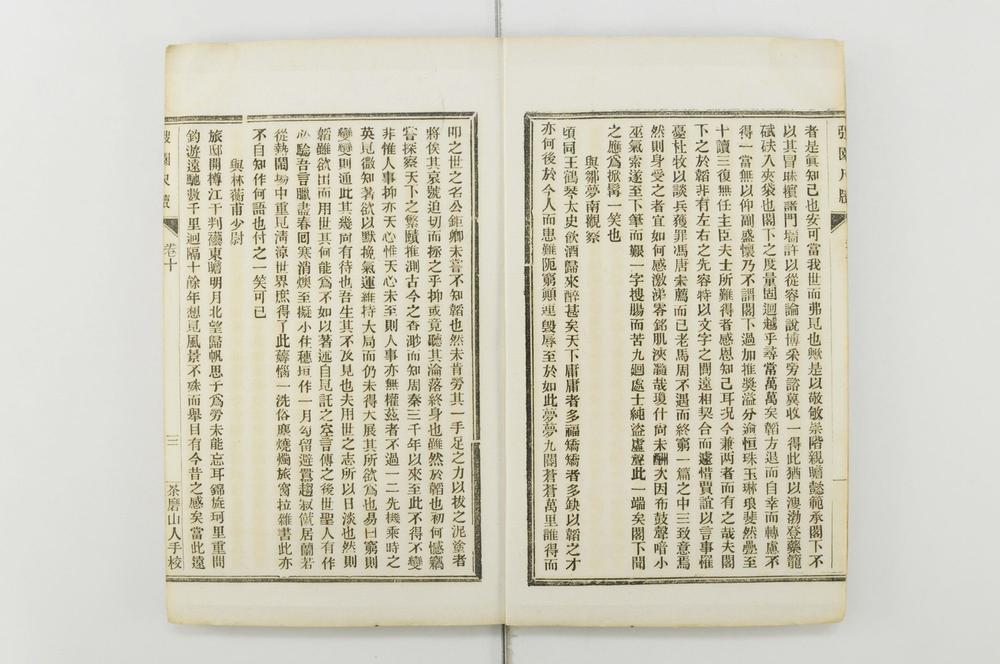 者是眞知己也安可當我世而弗見也歟是以敬敏崇階親瞻懿範承閣下不
以其冒昧擯諸門墻許以從容論說博采旁諮裒收一得此猶以溲渤登藥籠
碔砆入夾袋也閣下之度量固迴越乎尋常萬萬矣韜方退而自幸而轉慮不
得一當無以仰副盛懷乃不謂閣下過加推獎溢分逾恒珠玉琳琅斐然疊至
十讀三復無任主臣夫士所難得者感恩知己耳況今兼兩者而有之哉夫閣
下之於韜非有左右之先容特以文字之間遠相契合而遽惜賈誼以言事罹
憂杜牧以談兵獲罪馮唐未薦而已老馬周不遇而終窮一篇之中三致意焉
然則身受之者宜如何感激涕零銘肌浹瀹哉瓊什尚未酬次因布鼓聲喑小
巫氣索遂至下筆而艱一字搜腸而苦九廻處士純盜虛聲此一端矣閣下聞
之應爲掀髯一笑也
與鄒夢南觀察
頃同王鶴琴太史飲酒歸來醉甚矣天下庸庸者多福矯矯者多缺以韜之才
亦何後於今人而患難阨窮顚連毁辱至於如此夢夢九閽蒼蒼萬里誰得而
叩之世之名公鉅卿未嘗不知韜也然未肯勞其一手足之力以拔之泥塗者
將俟其哀號迫切而拯之乎抑或竟聽其淪落終身也雖然於韜也初何憾竊
嘗探察天下之繁賾推測古今之杳渺而知周秦三千年以來至此不得不變
非惟人事抑亦天心惟天心未至則人事亦無權茲者不過一二先機乘時之
英見微知著欲以默挽氣運維持大局而仍未得大展其所欲爲也易曰窮則
變變則通此其幾尚有待也吾生其不及見也夫用世之志所以日淡也然則
韜雖欲出而用世其何能爲不如以著述自見託之空言傳之後世聖人有作
必驗吾言臘盡春回寒消煥至擬小住穗垣作一月勾留避囂趨寂僦居蘭若
從熱鬧場中重見淸涼世界庶得了此薄惱一洗俗塵燒燭旅窗拉雜書此亦
不自知作何語也付之一笑可已
與林蘅甫少尉
旅邸開樽江干判襼東瞻明月北望歸帆思子爲勞未能忘耳錦旋珂里重問
釣遊遠馳數千里迴隔十餘年想見風景不殊而舉目有今昔之感矣當此遠
卷十
三
茶磨山人手校